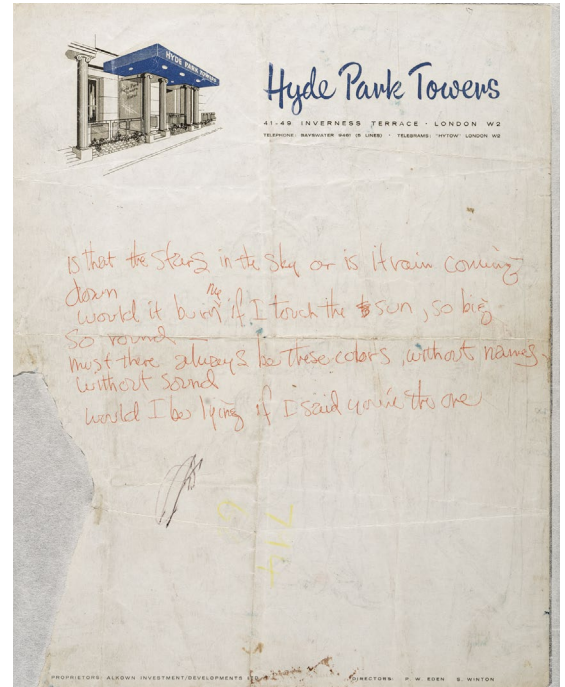 HYDE PARK TOWERS
Hyde Park Towers
41-49 INVERNESS TERRACE · LONDON W2
TELEPHONE: BAYSWATER 8461 (5 LINES) · TELEGRAMS: "HYTOW" LONDON W2
is that the stars in the sky or is it rain coming
down
would it burn me if I touch the sun, so big
so round
must there always be these colors, without names,
without sound
would I be lying if I said you're the one
PROPRIETORS: ALKOWN INVESTMENT/DEVELOPMENTS LTD. DIRECTORS: P. W. EDEN S. WINTON